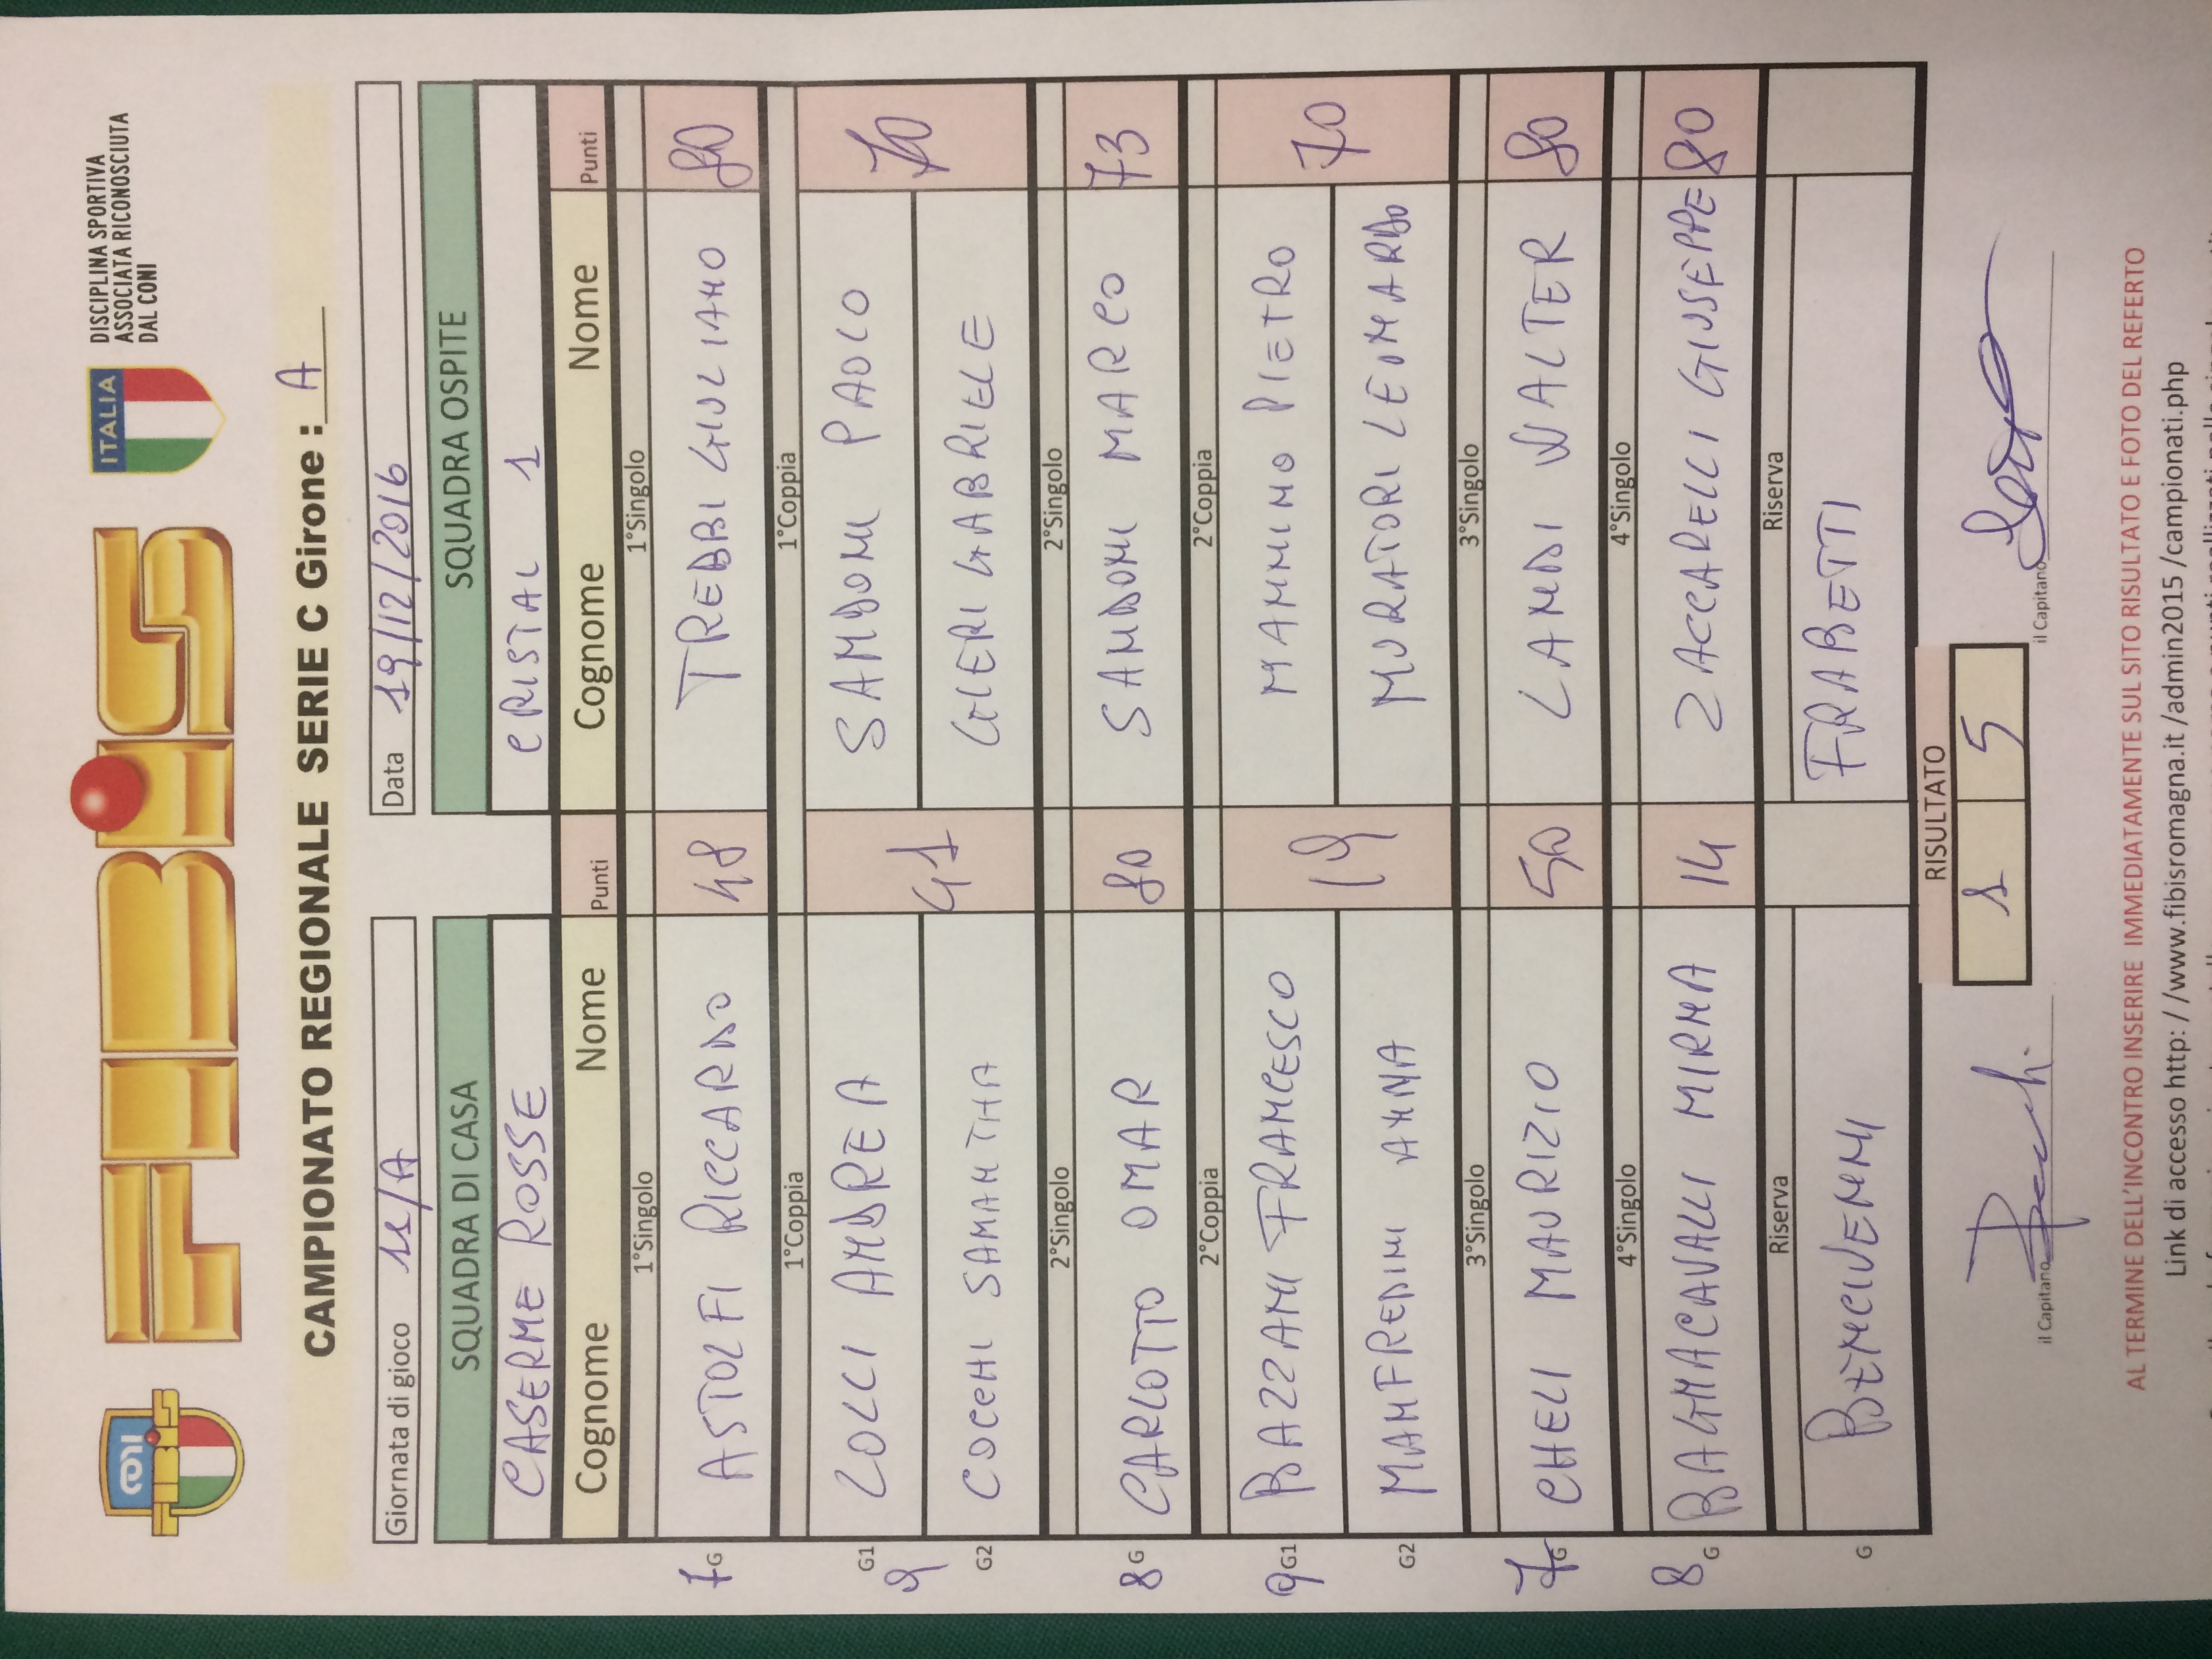 FIBiS
ITALIA
DISCIPLINA SPORTIVA
ASSOCIATA RICONOSCIUTA
DAL CONI
CAMPIONATO REGIONALE SERIE C Girone : A
Giornata di gioco 11/A Data 19/12/2016
SQUADRA DI CASA SQUADRA OSPITE
CASERME ROSSE CRISTAL 1
Cognome Nome Punti Cognome Nome Punti
1°Singolo 1°Singolo
7 G ASTOLFI RICCARDO 48 TREBBI GIULIANO 80
1°Coppia 1°Coppia
G1 LOLLI ANDREA SANDONI PAOLO
9 41 70
G2 COCCHI SAMANTHA GLERI GABRIELE
2°Singolo 2°Singolo
8 G CARLOTTO OMAR 80 SANDONI MARCO 73
2°Coppia 2°Coppia
9 G1 BAZZANI FRANCESCO 19 MANNINO PIETRO 70
G2 MANFREDINI ANNA MURATORI LEONARDO
3°Singolo 3°Singolo
7 G CHELI MAURIZIO 50 LANDI WALTER 80
4°Singolo 4°Singolo
8 G BAGNACAVALLI MIRNA 14 ZACCARELLI GIUSEPPE 80
Riserva Riserva
G BENCIVENNI FRABETTI
RISULTATO
1 5
il Capitano il Capitano
AL TERMINE DELL'INCONTRO INSERIRE IMMEDIATAMENTE SUL SITO RISULTATO E FOTO DEL REFERTO
Link di accesso http: / /www.fibisromagna.it /admin2015 /campionati.php